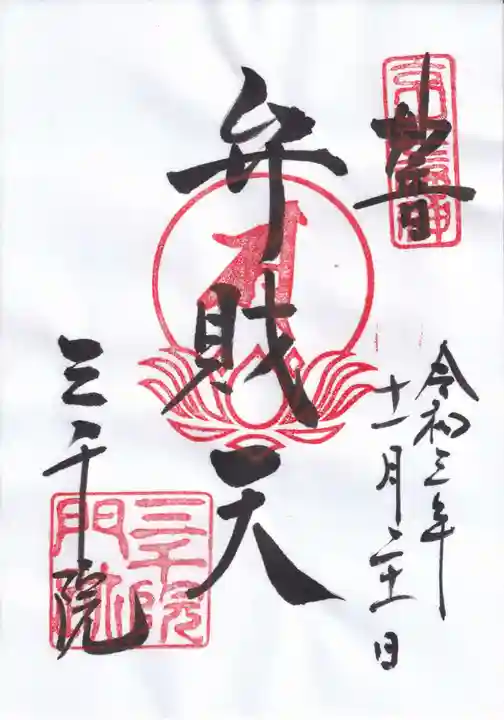 妙音
弁財天
令和三年
十一月二十一日
三千院
三千院
門